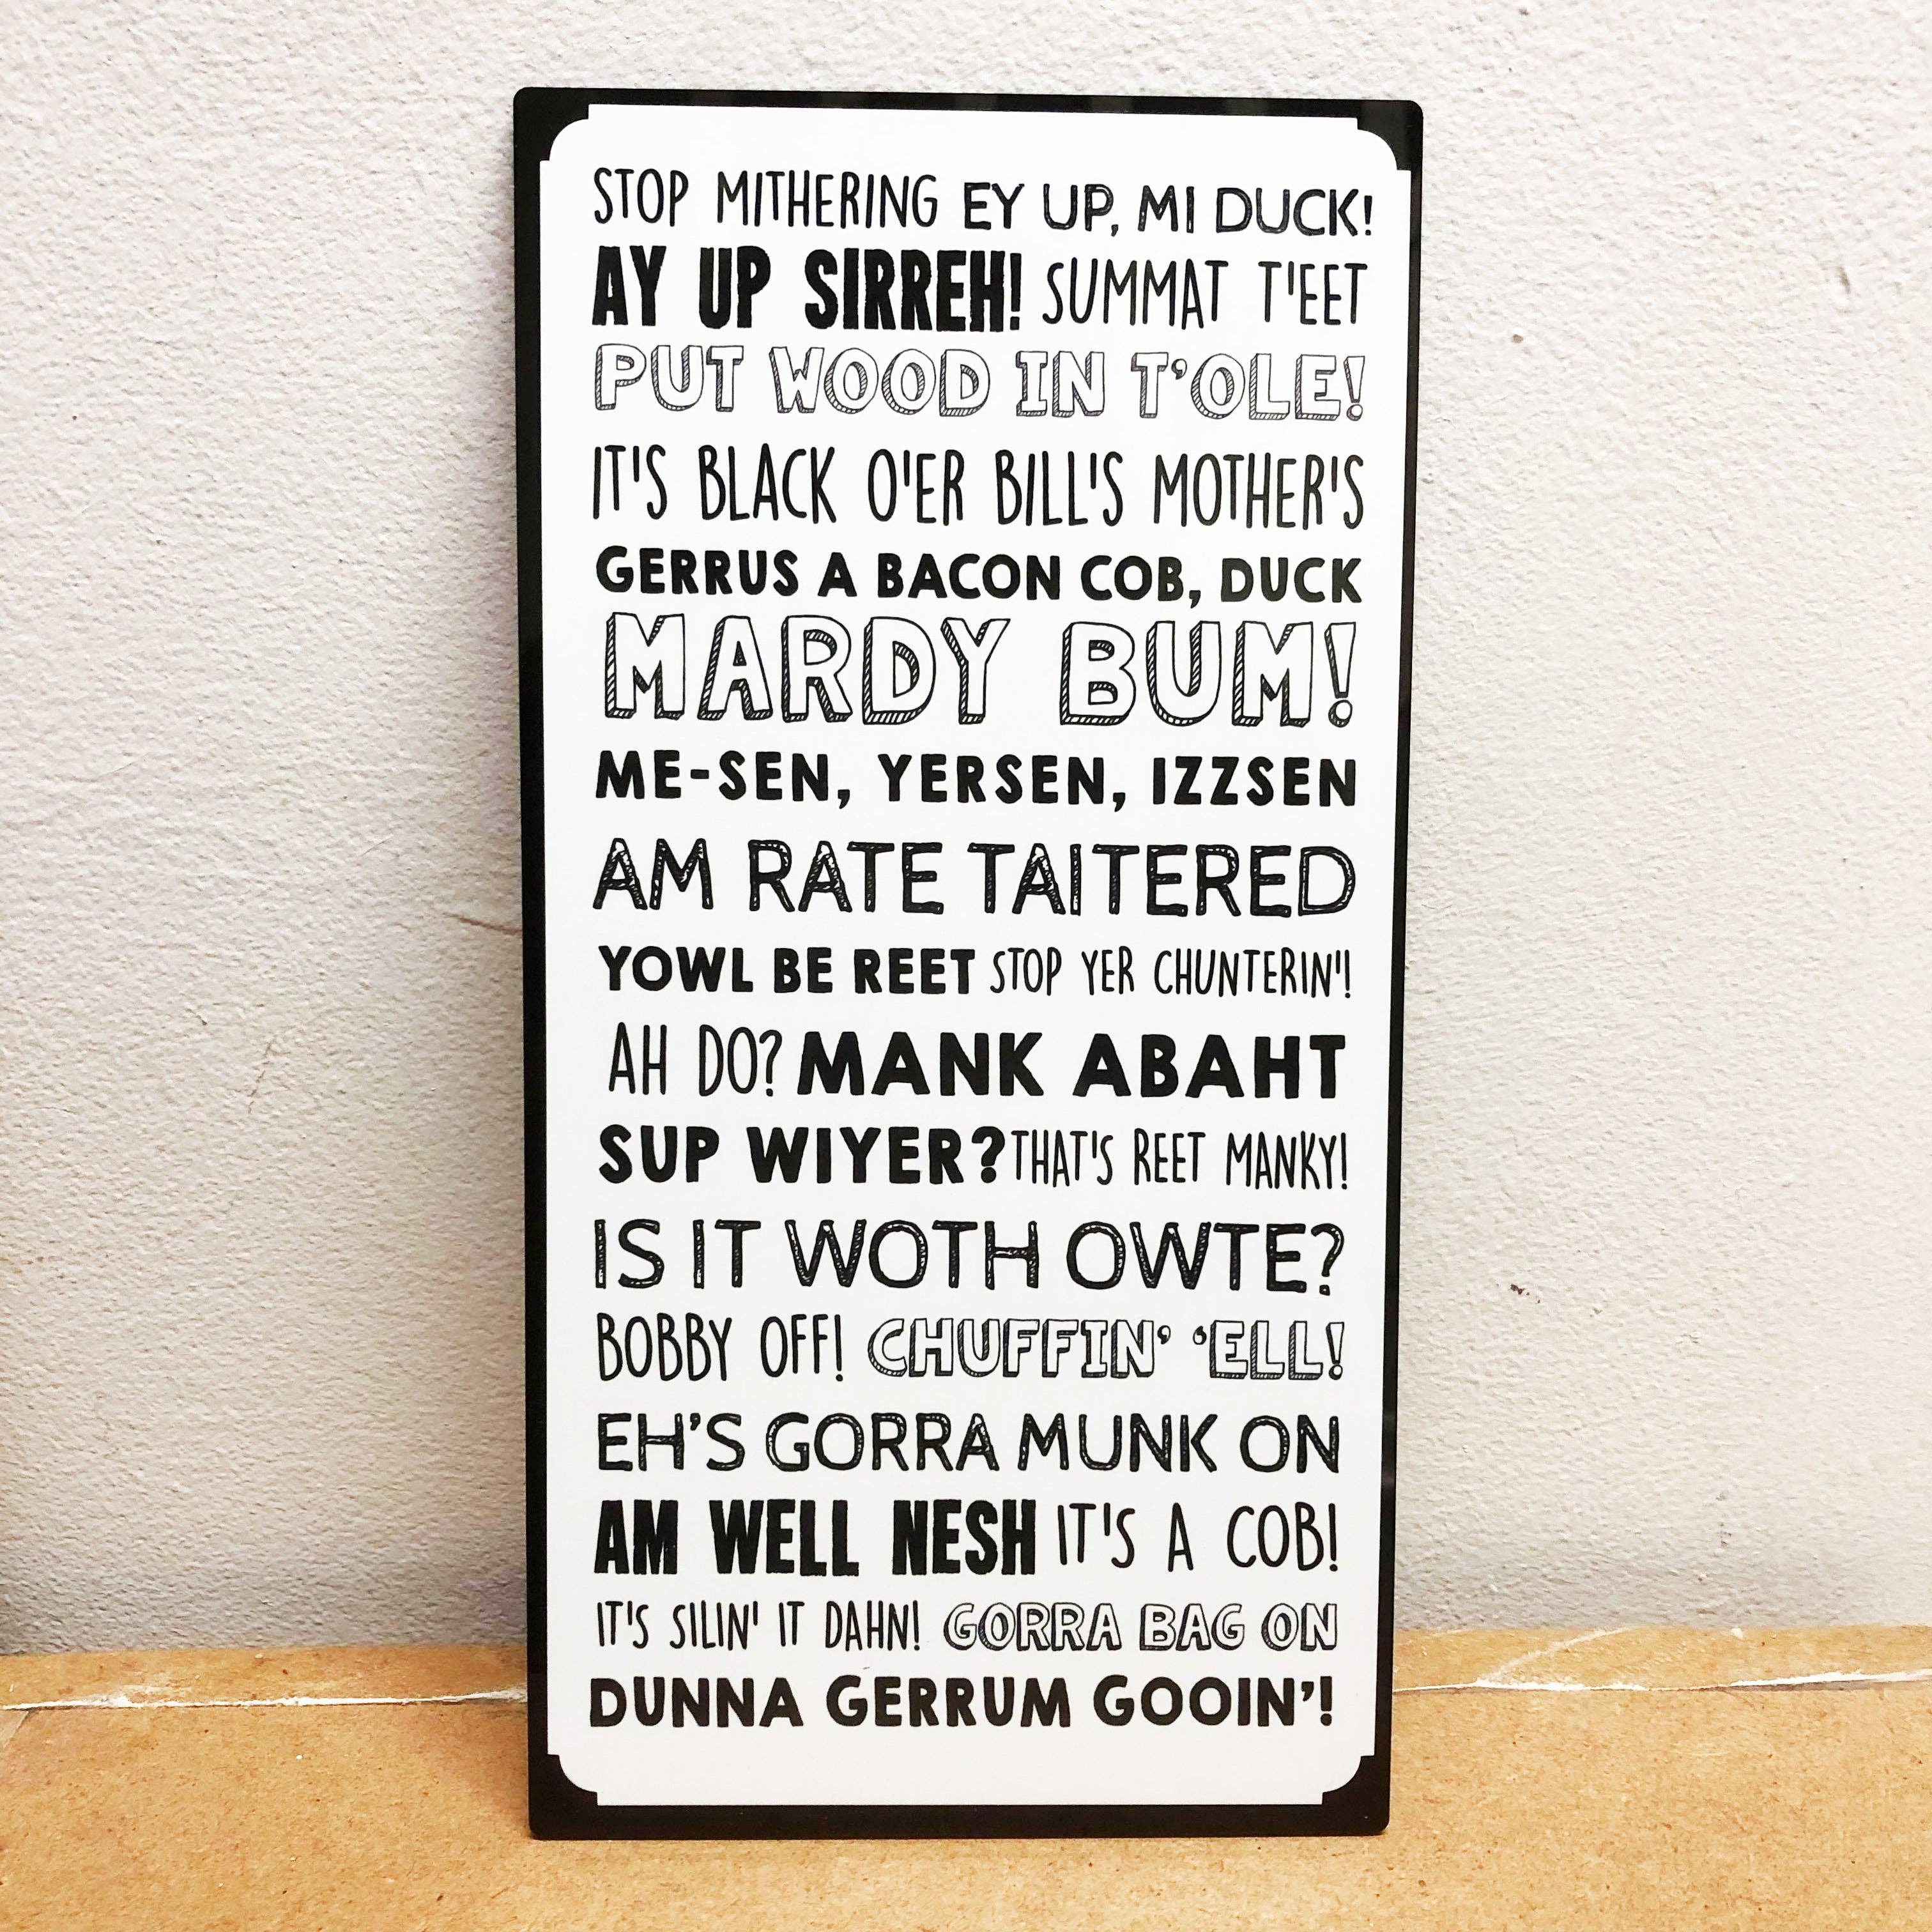 STOP MITHERING EY UP, MI DUCK!
AY UP SIRREH! SUMMAT T'EET
PUT WOOD IN T'OLE!
IT'S BLACK O'ER BILL'S MOTHER'S
GERRUS A BACON COB, DUCK
MARDY BUM!
ME-SEN, YERSEN, IZZSEN
AM RATE TAITERED
YOWL BE REET STOP YER CHUNTERIN'!
AH DO? MANK ABAHT
SUP WIYER? THAT'S REET MANKY!
IS IT WOTH OWTE?
BOBBY OFF! CHUFFIN' 'ELL!
EH'S GORRA MUNK ON
AM WELL NESH IT'S A COB!
IT'S SILIN' IT DAHN! GORRA BAG ON
DUNNA GERRUM GOOIN'!